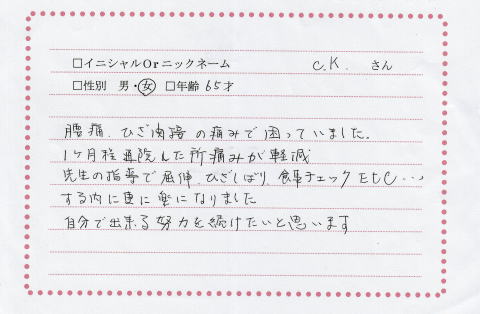 □イニシャルOrニックネーム C.K. さん
□性別 男・女 □年齢 65才
腰痛、ひざ関接の痛みで困っていました。
1ヶ月程通院した所痛みが軽減
先生の指導で屈伸、ひざしばり、食事チェックEtc…
する内に更に楽になりました
自分で出来る努力を続けたいと思います